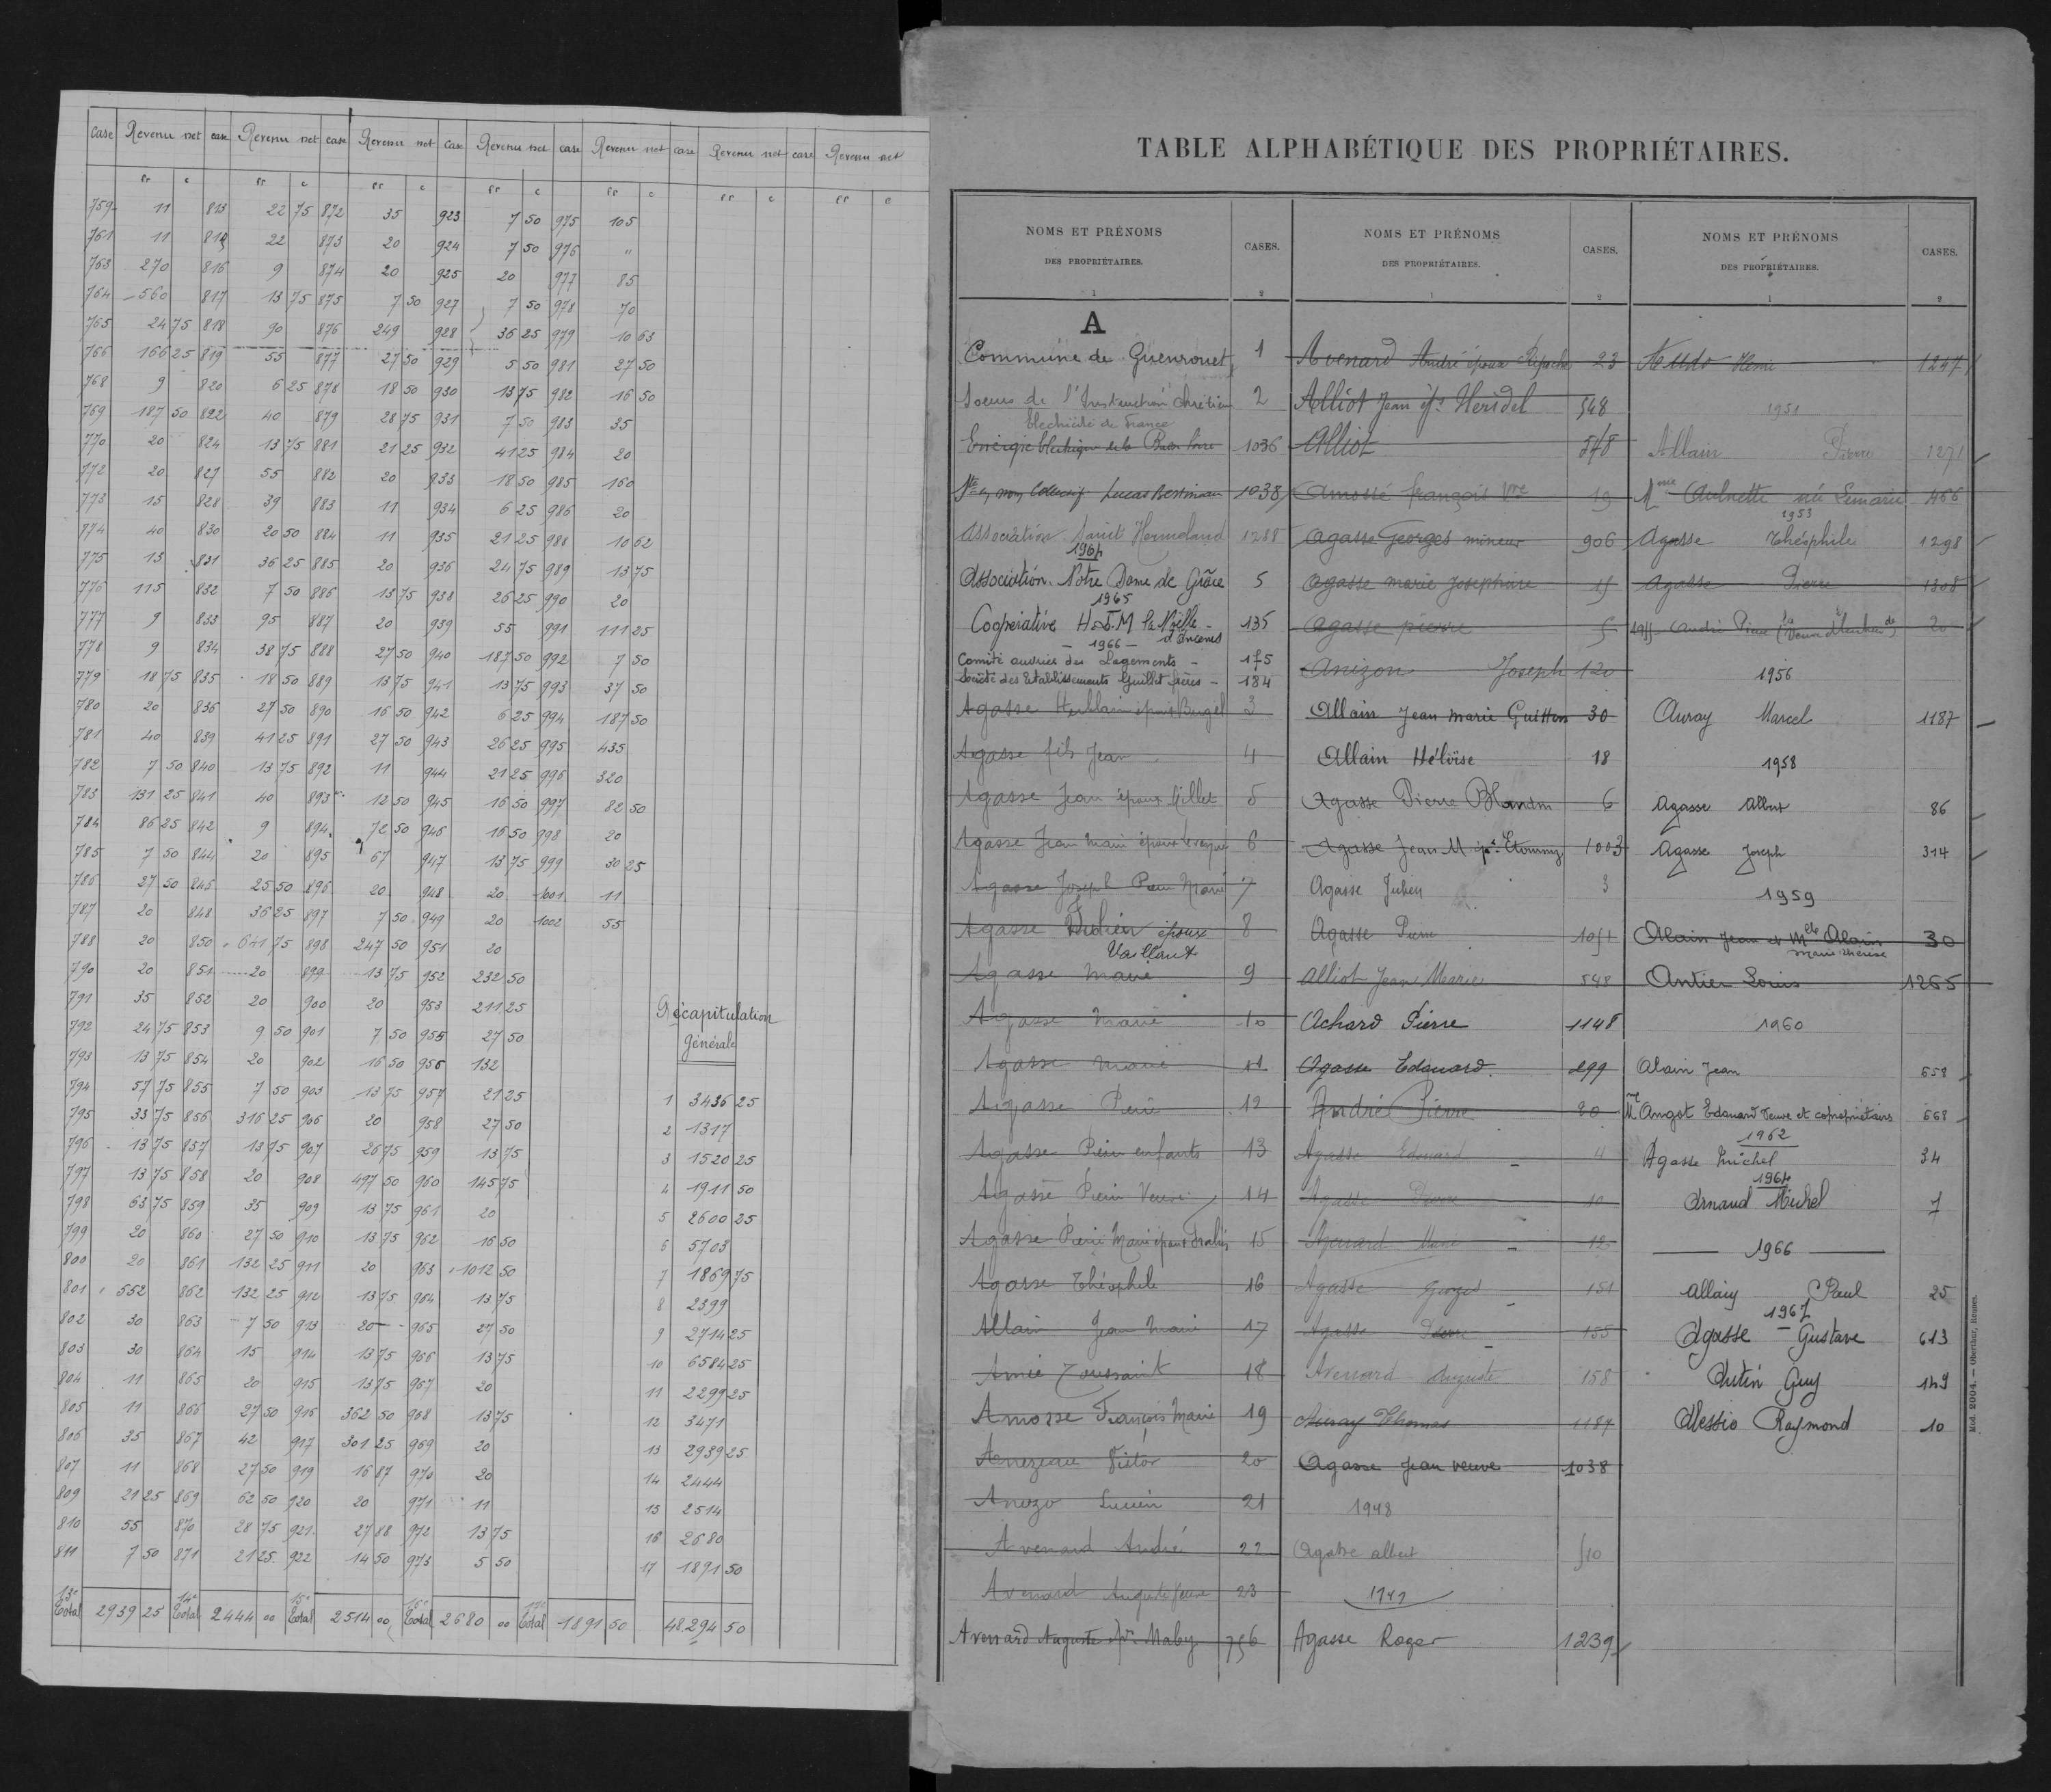 Case Revenu net case Revenu net case Revenu net case Revenu net case Revenu net case Revenu net case Revenu net
fr c fr c fr c fr c fr c fr c fr c
759 11 813 22 75 872 35 923 7 50 975 105
761 11 814 22 873 20 924 7 50 976 "
763 270 816 9 874 20 925 20 977 85
764 560 817 13 75 875 7 50 927 7 50 978 70
765 24 75 818 90 876 249 928 36 25 979 10 63
766 166 25 819 55 877 27 50 929 5 50 981 27 50
768 9 820 6 25 878 18 50 930 13 75 982 16 50
769 187 50 822 40 879 28 75 931 7 50 983 35
770 20 824 13 75 881 21 25 932 41 25 984 20
772 20 827 55 882 20 933 18 50 985 160
773 15 828 39 883 11 934 6 25 986 20
774 40 830 20 50 884 11 935 21 25 988 10 62
775 13 831 36 25 885 20 936 24 75 989 13 75
776 115 832 7 50 886 13 75 938 26 25 990 20
777 9 833 95 887 20 939 55 991 111 25
778 9 834 38 75 888 27 50 940 187 50 992 7 50
779 18 75 835 18 50 889 13 75 941 13 75 993 37 50
780 20 836 27 50 890 16 50 942 6 25 994 187 50
781 40 839 41 25 891 27 50 943 26 25 995 435
782 7 50 840 13 75 892 11 944 21 25 996 320
783 131 25 841 40 893 12 50 945 16 50 997 82 50
784 86 25 842 9 894 72 50 946 16 50 998 20
785 7 50 844 20 895 67 947 13 75 999 30 25
786 27 50 846 25 50 896 20 948 20 1001 11
787 20 848 36 25 897 7 50 949 20 1002 55
788 20 850 641 75 898 247 50 951 20
790 20 851 20 899 13 75 952 232 50
791 35 852 20 900 20 953 211 25
792 24 75 853 9 50 901 7 50 955 27 50
793 13 75 854 20 902 16 50 956 132
794 57 75 855 7 50 903 13 75 957 21 25
795 33 75 856 316 25 906 20 958 27 50
796 13 75 857 13 75 907 26 75 959 13 75
797 13 75 858 20 908 497 50 960 145 75
798 63 75 859 35 909 13 75 961 20
799 20 860 27 50 910 13 75 962 16 50
800 20 861 132 25 911 20 963 1012 50
801 552 862 132 25 912 13 75 964 13 75
802 30 863 7 50 913 20 965 27 50
803 30 864 15 914 13 75 966 13 75
804 11 865 20 915 13 75 967 20
805 11 866 27 50 916 362 50 968 13 75
806 35 867 42 917 301 25 969 20
807 11 868 27 50 919 16 87 970 20
809 21 25 869 62 50 920 20 971 11
810 55 870 28 75 921 27 88 972 13 75
811 7 50 871 21 25 922 14 50 973 5 50
Récapitulation
Générale
1 3436 25
2 1317
3 1520 25
4 1911 50
5 2600 25
6 5703
7 1869 75
8 2399
9 2714 25
10 6584 25
11 2299 25
12 3471
13 2939 25
14 2444
15 2514
16 2680
17 1891 50
13e Total 2939 25 14e Total 2444 00 15e Total 2514 00 16e Total 2680 00 17e Total 1891 50 48.294 50
TABLE ALPHABÉTIQUE DES PROPRIÉTAIRES.
NOMS ET PRÉNOMS DES PROPRIÉTAIRES. CASES. NOMS ET PRÉNOMS DES PROPRIÉTAIRES. CASES. NOMS ET PRÉNOMS DES PROPRIÉTAIRES. CASES.
1 2 1 2 1 2
A
Commune de Guenrouet 1
Soeurs de l'Instruction Chrétienne 2
Electricité de France
Energie Electrique de la Basse Loire 1036
Sté en nom Collectif Lucas 1038
Association Saint Hermeland 1288
1964
Association Notre Dame de Grâce 5
1965
Coopérative H.L.M la Noëlle d'Ancenis 135
- 1966 -
Comité ouvrier des Logements - 175
Société des Etablissements Guillet frères - 184
Agasse 3
Agasse fils Jean 4
Agasse Jean époux Gillet 5
Agasse Jean Marie époux 6
Agasse Joseph Pierre Marie 7
Agasse Julien époux Vaillant 8
Agasse Marie 9
Agasse Marie 10
Agasse Marie 11
Agasse Pierre 12
Agasse Pierre enfants 13
Agasse Pierre Veuve 14
Agasse Pierre Marie époux 15
Agasse Théophile 16
Allain Jean Marie 17
Amié Toussaint 18
Amosse François Marie 19
Anezeau Victor 20
Anezo Lucien 21
Avenard André 22
Avenard Auguste Veuve 23
Avenard Auguste épx Maby 756
Avenard André époux 23
Alliot Jean épx Heridel 548
Alliot 548
Amossé françois Vve 19
Agasse Georges mineur 906
Agasse marie Josephine 15
Agasse pierre 5
Anizon Joseph 120
Allain Jean marie Guitton 30
Allain Héloïse 18
Agasse Pierre Blandin 6
Agasse Jean M épx Etourmy 1003
Agasse Julien 3
Agasse Pierre 1051
Alliot Jean Marie 548
Achard Pierre 1148
Agasse Edouard 299
André Pierre 20
Agasse Edouard 4
Agasse Pierre 10
Avenard Marie 12
Agasse Georges 151
Agasse Pierre 155
Avenard Auguste 158
Auray Thomas 1187
Agasse Jean veuve 1038
1948
Agasse albert 510
1949
Agasse Roger 1239
Henri 1247
1951
Allain Pierre 1271
Mme Aulnette née Lemarié 466
1953
Agasse Théophile 1298
Agasse Pierre 1308
1955 André Pierre 20
1956
Auray Marcel 1187
1958
Agasse Albert 86
Agasse Joseph 314
1959
Alain Jean et Mlle Alain Marie Thérèse 30
Antier Louis 1265
1960
Alain Jean 558
Me Angot Edouard Veuve et copropriétaires 668
1962
Agasse Michel 34
1964
Arnaud Michel 7
1966
Allain Paul 25
1967
Agasse Gustave 613
Autin Guy 149
Alessio Raymond 10
Mod. 2904. — Oberthur, Rennes.